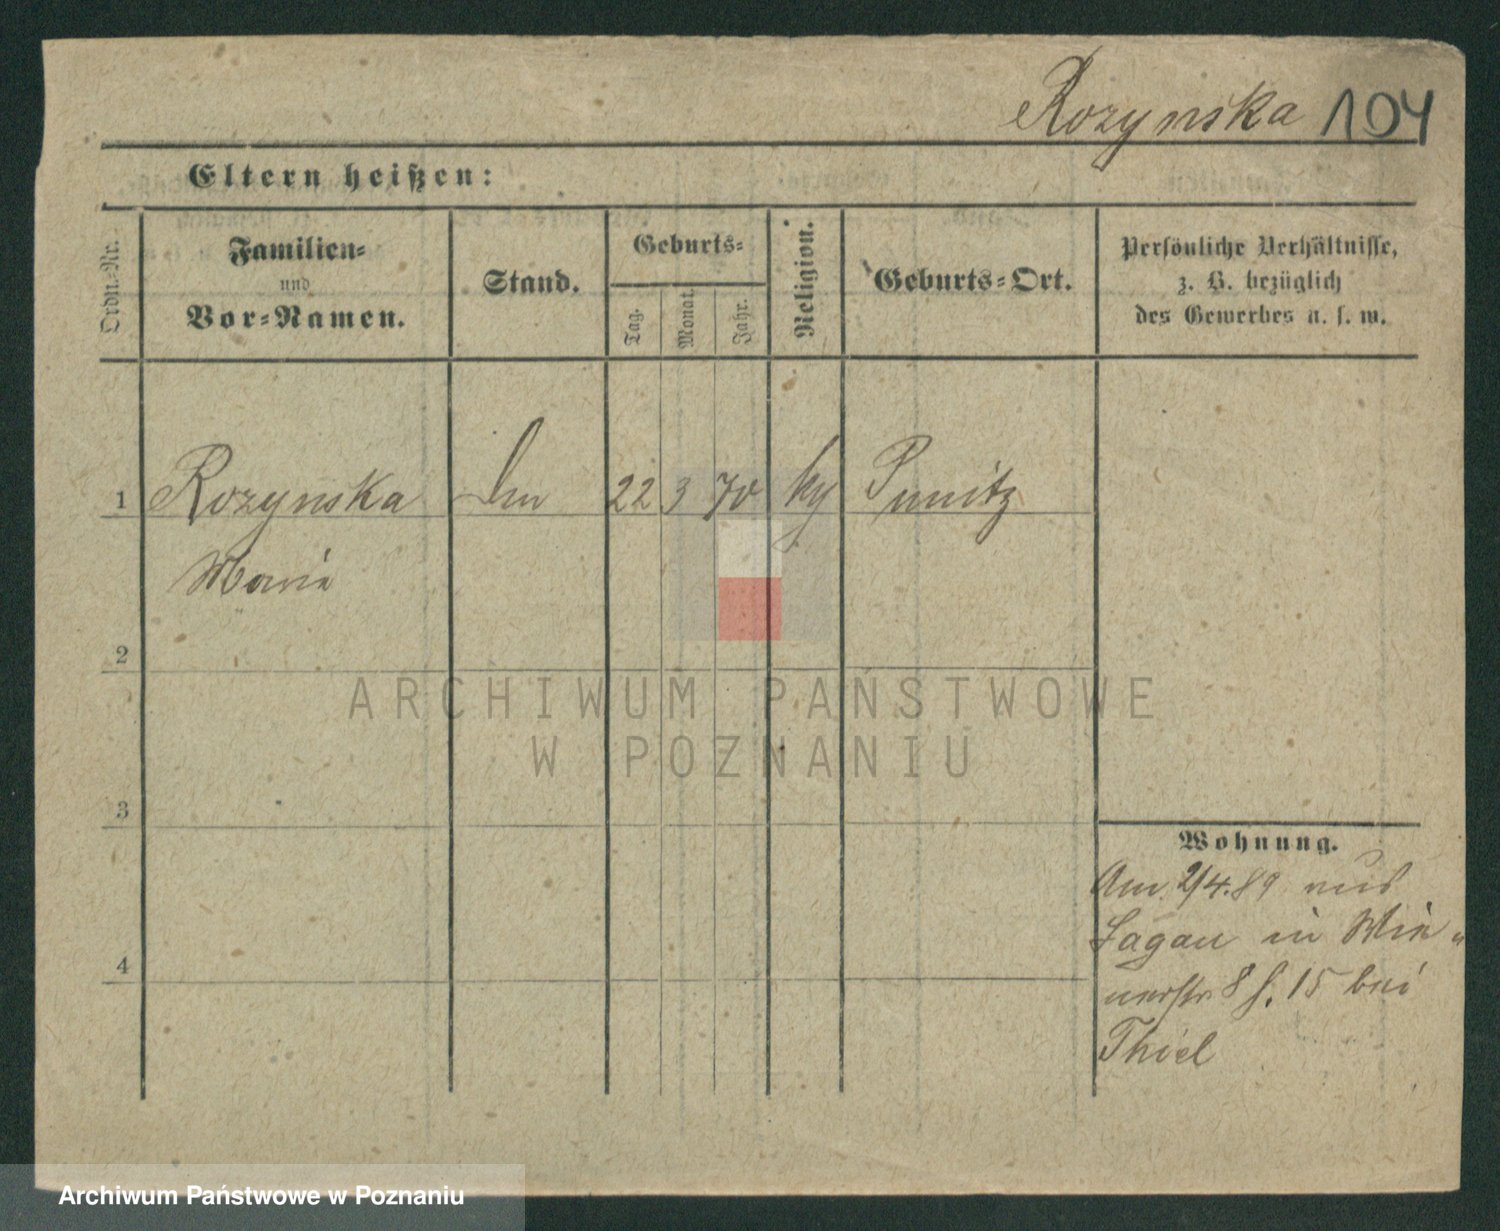 Rozynska 104
Eltern heißen:
Ordn.-Nr.
Familien-
und
Vor-Namen.
Stand.
Geburts-
Tag.
Monat.
Jahr.
Religion.
Geburts-Ort.
Persönliche Verhältnisse,
z. B. bezüglich
des Gewerbes u. s. w.
1 Rozynska 22 3 70 Punitz
Marie
2
3
4
Wohnung.
Am 2/4.89 aus
Sagan in Wie-
nerstr 8 15 bei
Thiel
ARCHIWUM PAŃSTWOWE
W POZNANIU
Archiwum Państwowe w Poznaniu